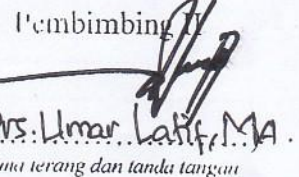 Pembimbing II
Drs. Umar Latif, MA.
nama terang dan tanda tangan